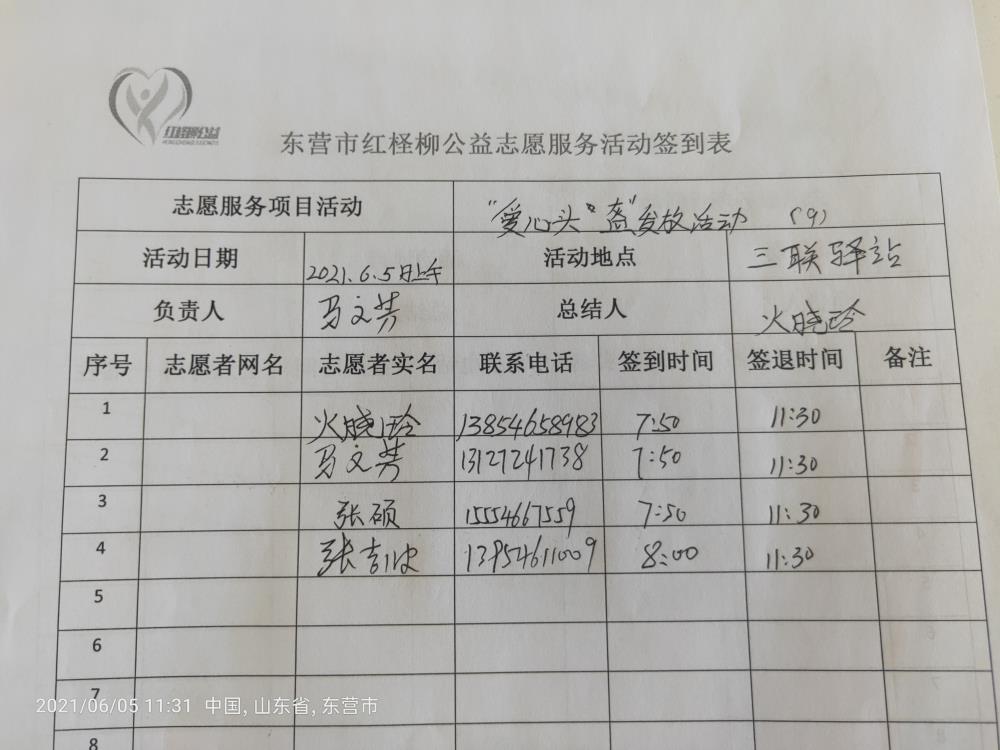 红柽柳公益
东营市红柽柳公益志愿服务活动签到表
志愿服务项目活动 "爱心头盔"发放活动 (9)
活动日期 2021.6.5日上午 活动地点 三联驿站
负责人 马文芳 总结人 火晓玲
序号 志愿者网名 志愿者实名 联系电话 签到时间 签退时间 备注
1 火晓玲 13854658983 7:50 11:30
2 马文芳 13127241738 7:50 11:30
3 张硕 15554667559 7:50 11:30
4 张吉波 13954611009 8:00 11:30
5
6
7
8
2021/06/05 11:31 中国, 山东省, 东营市